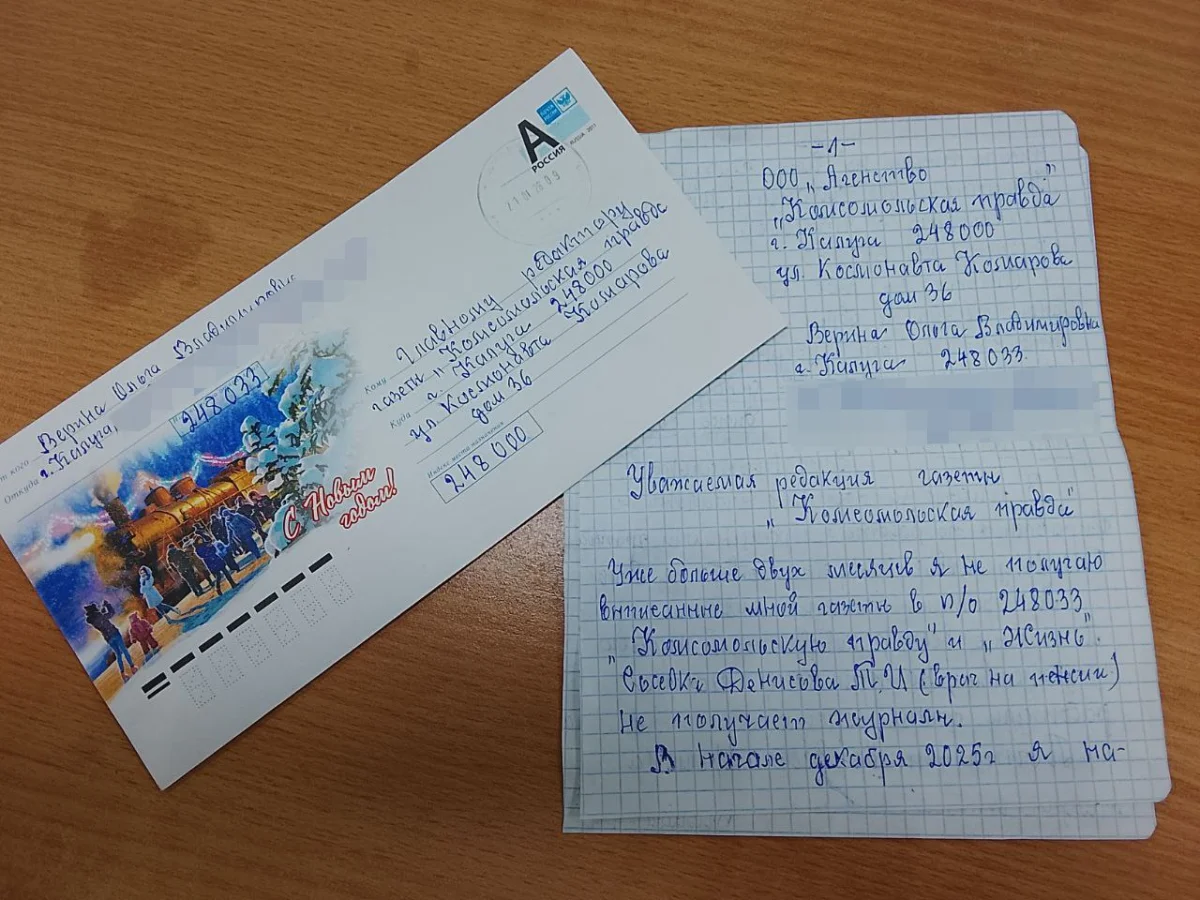 А
РОССИЯ
RUSSIA 2011
От кого Верина Ольга Владимировна
Откуда г. Калуга,
248033
С Новым
годом!
Кому Главному редактору
газеты „Комсомольская правда
Куда г. Калуга 248000
ул Космонавта Комарова
дом 36
Индекс места назначения
248 000
-1-
ООО „Агенство
„Комсомольская правда"
г. Калуга 248000
ул Космонавта Комарова
дом 36
Верина Ольга Владимировна
г. Калуга 248033
Уважаемая редакция газеты
„Комсомольская правда"
Уже больше двух месяцев я не получаю
выписанные мной газеты в п/о 248033
„Комсомольскую правду" и „Жизнь".
Соседка Денисова Т.И (врач на пенсии)
не получает журналы.
В начале декабря 2025г я на-